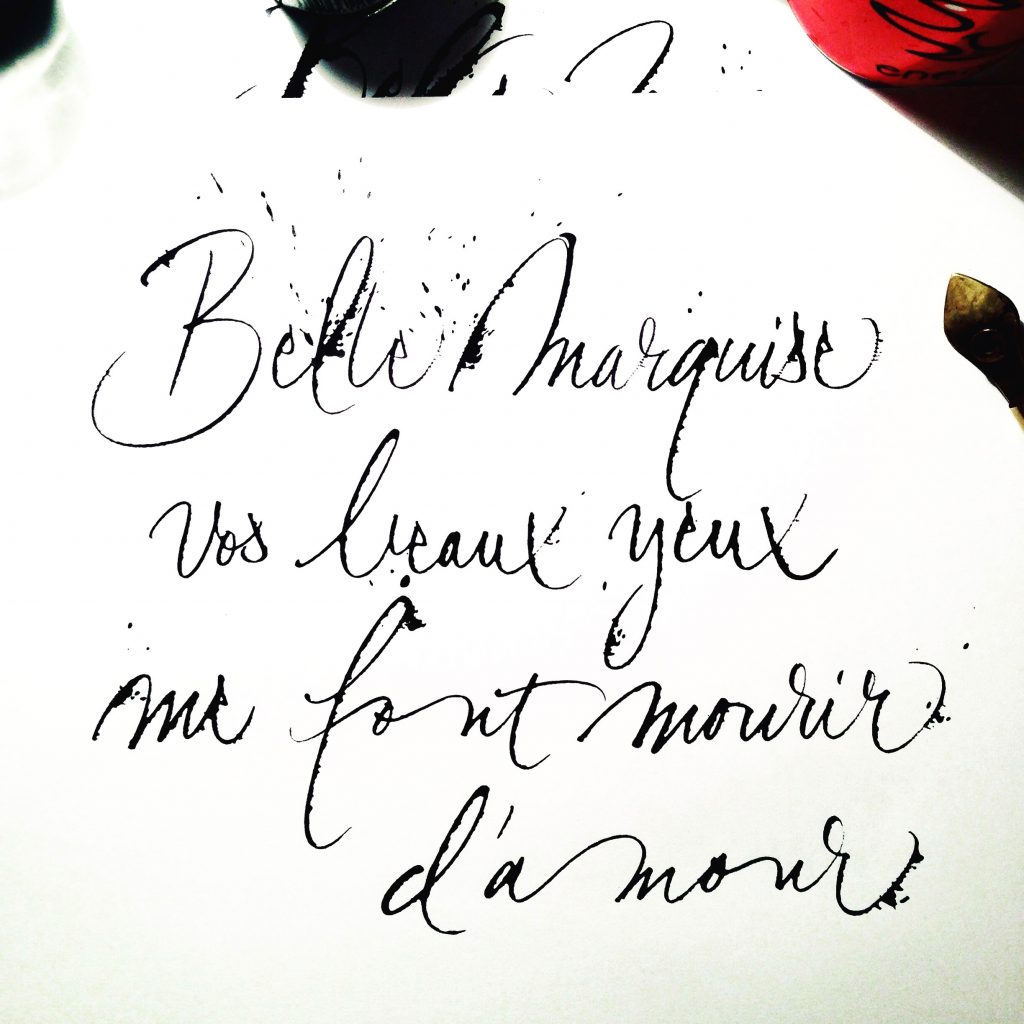 ene
Belle Marquise
vos beaux yeux
me font mourir
d'amour